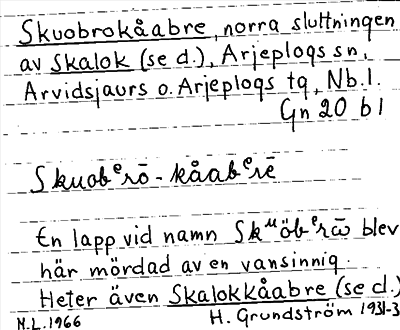 Skuobrokåabre, norra sluttningen
av Skalok (se d.), Arjeplogs sn,
Arvidsjaurs o. Arjeplogs tg, Nb.l.
Gn 20 b 1
Skuobᵉrō-kåabᵉrē
En lapp vid namn Skᵘöbᵉrω̄ blev
här mördad av en vansinnig.
Heter även Skalokkåabre (se d.)
N.L. 1966 H. Grundström 1931-3